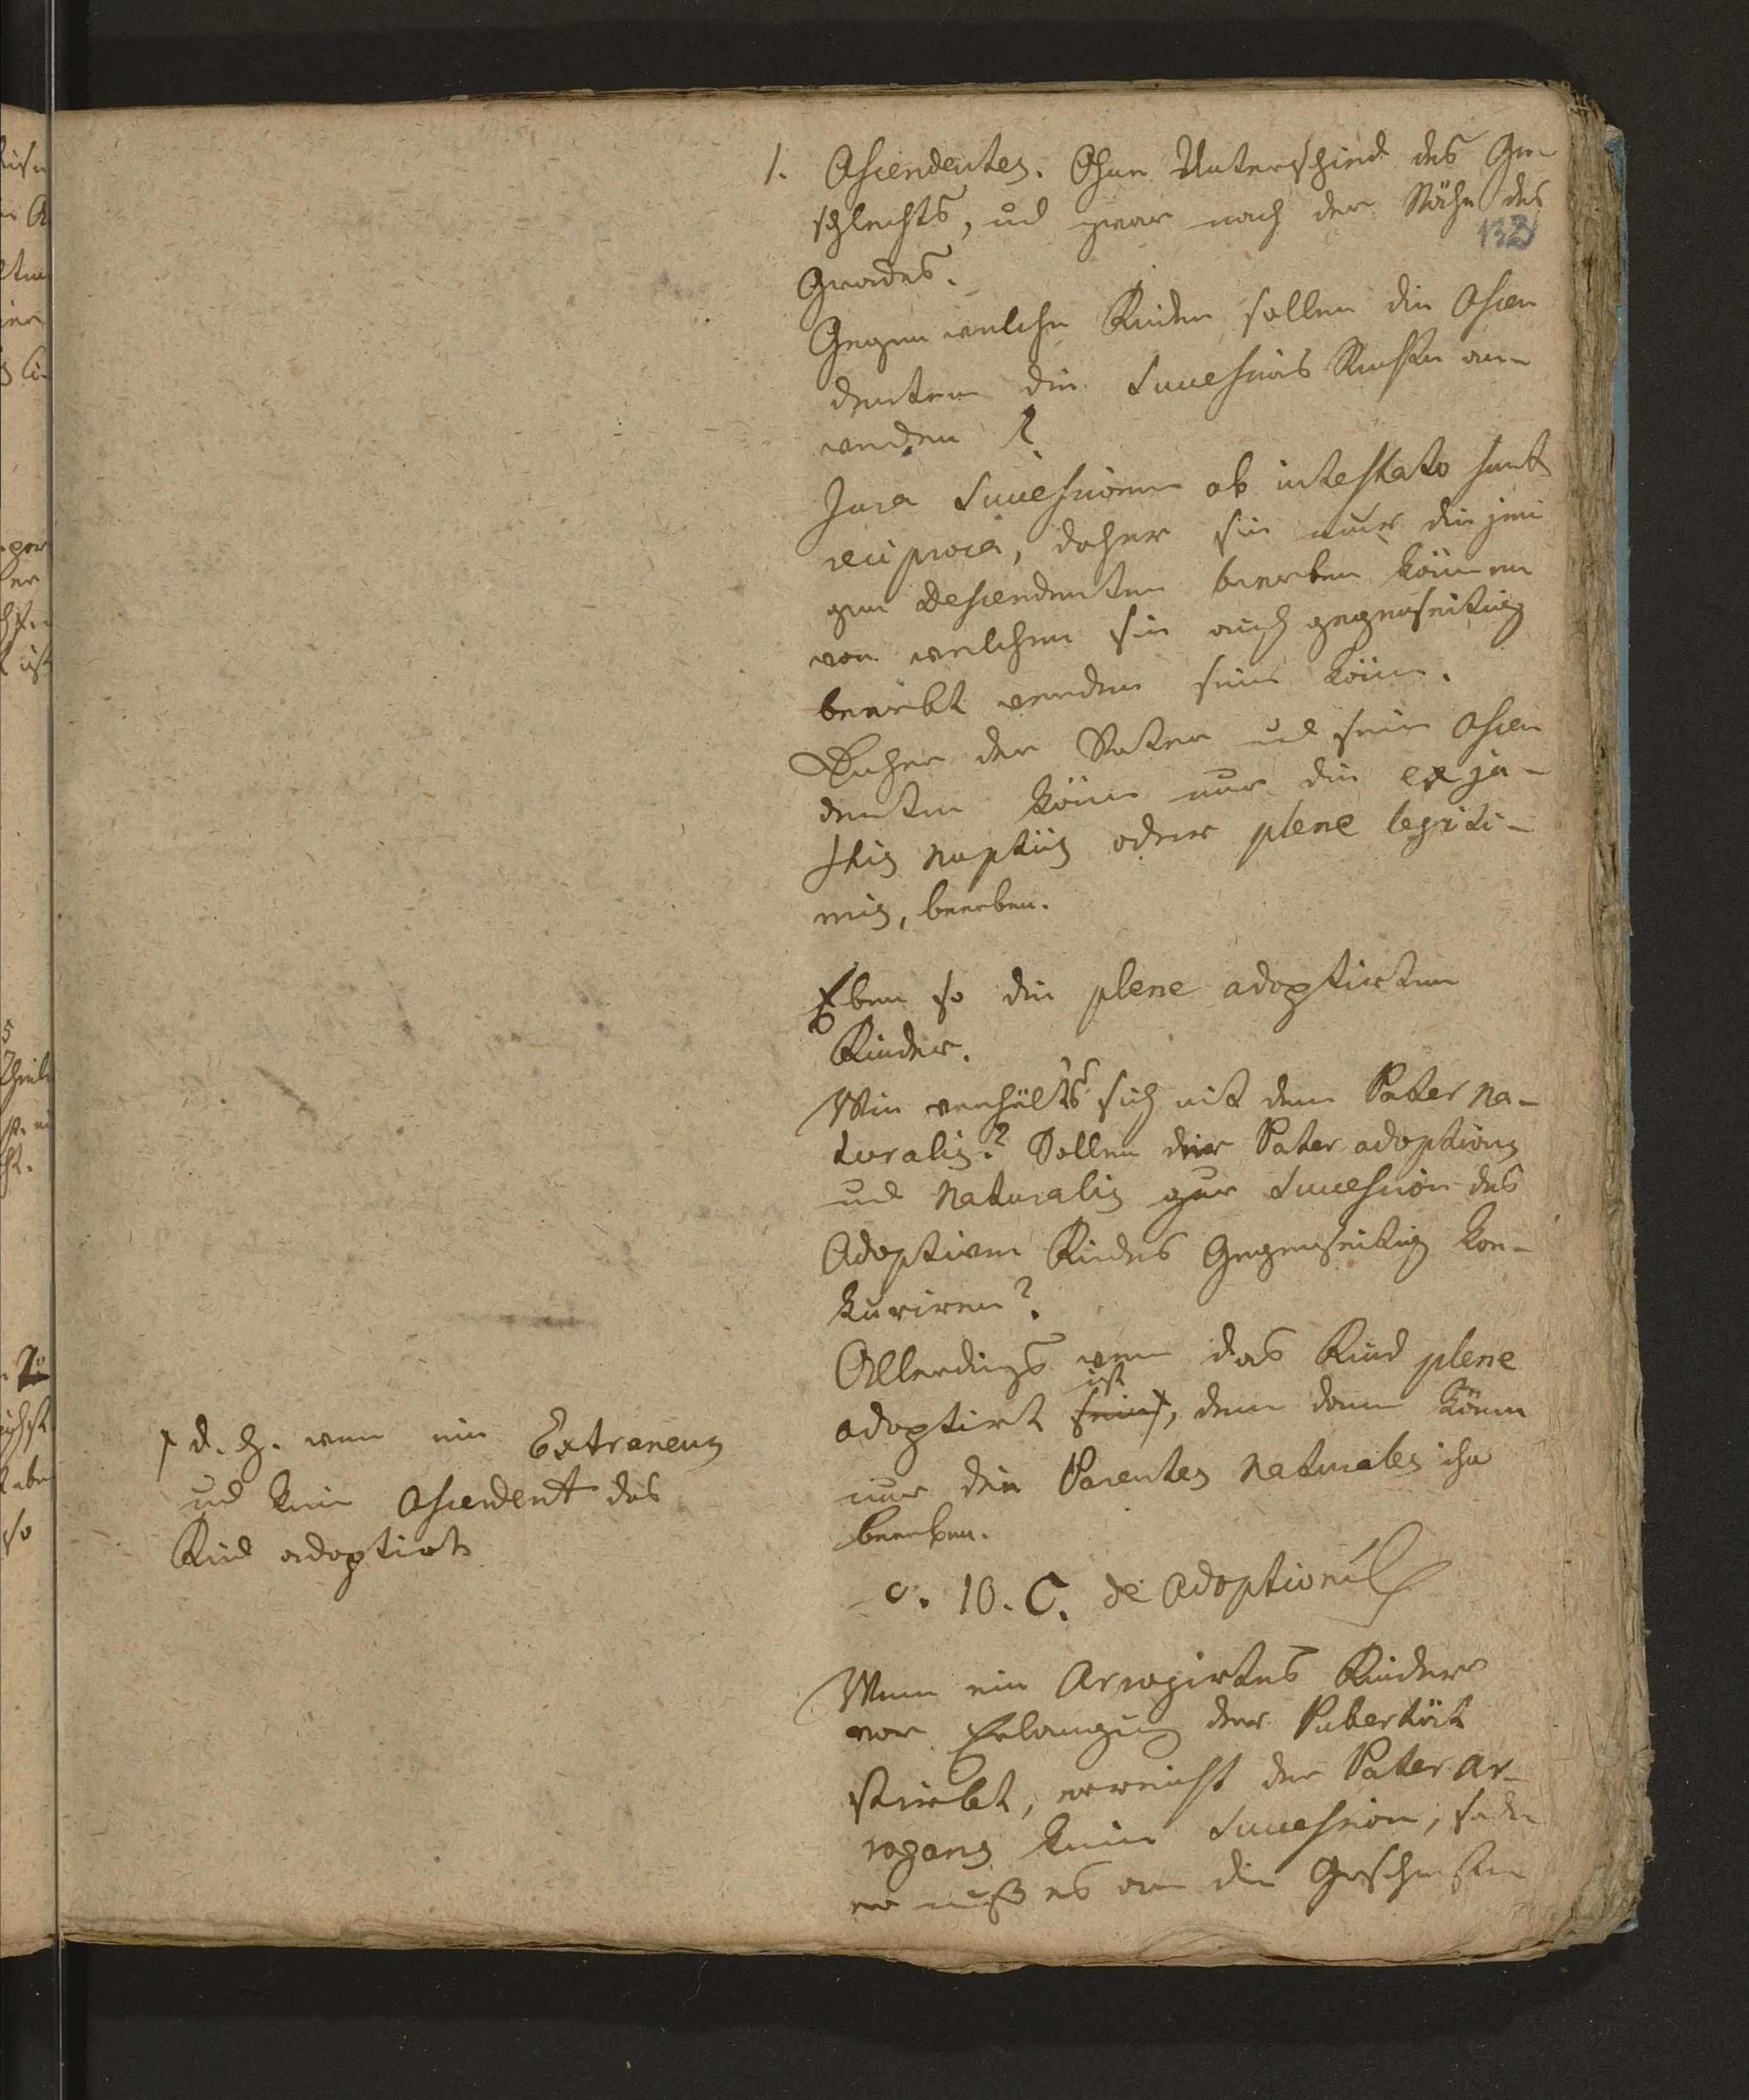 1. Ascendentes. Ohne Unterschied des Ge
schlechts, ud zwar nach der Nähe des
132
Grades.
Gegen welche Kinder sollen die Ascen
denten die Successions Rechte an-
wenden?
Jura Successionum ab intestato sunt
reciproca, daher sie nur diejeni
gen Descendenten beerben können
von welchen sie auch gegenseitig
beerbt werden sein könn.
Daher der Vater ud seine Ascen
denten könn nur die ex ju-
stis nuptiis oder plene legiti-
mis, beerben.
Eben so die plene adoptirten
Kinder.
Wie verhälts sich mit dem Pater na-
turalis? Sollen der Pater adoptivus
und naturalis zur Succession des
Adoptiven Kindes Gegenseitig kon-
kuriren?
Allerdings wenn das Kind plene
adoptirt ist, denn dann könen
nur die Parentes naturales ihn
beerben.
c. 10. C. de adoptionib
Wenn ein Arrogirtes Kinder
vor Erlangung der Pubertät
stirbt, erreicht der Pater ar-
rogans keine Succession, sodn
er muß es an die Geschwister
d. h. wenn ein Extraneus
ud kein Ascendent das
Kind adoptirt